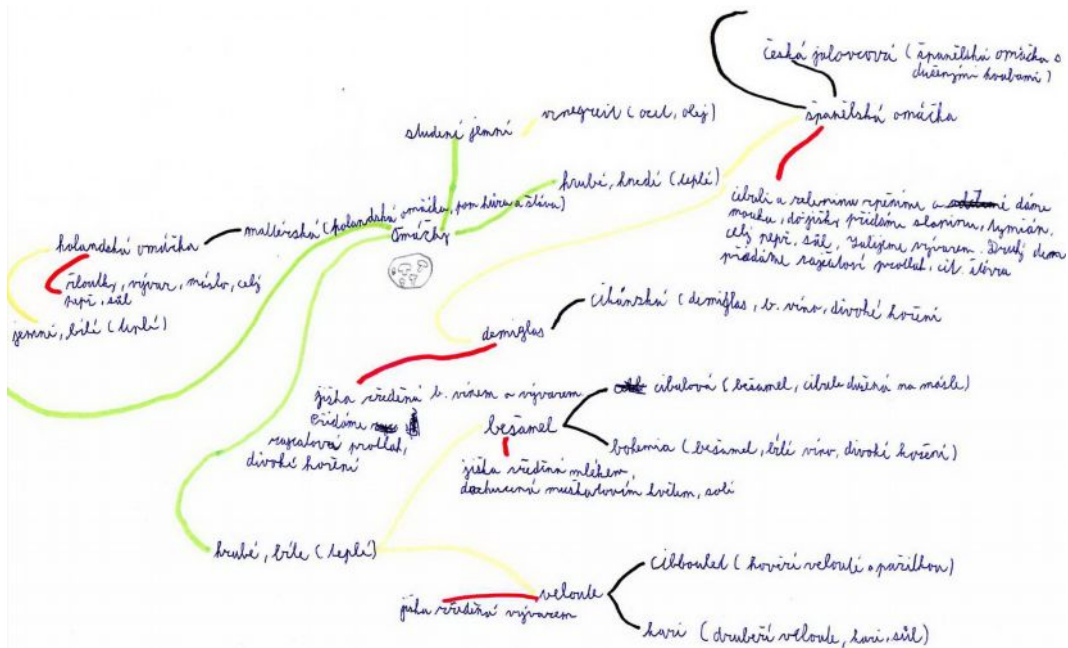 česká jalovcová (španělská omáčka s
dušenými houbami)
španělská omáčka
studení jemní
vinegreit (ocet, olej)
hrubé, hnedí (teplé)
cibuli a zeleninu opěníme a dáme
mouku, do jíšky přidáme slaninu, tymián,
celý pepř, sůl, zalijeme vývarem. Druhý den
přidáme rajčatoví protlak, cit. šťávu
maltézská (holandská omáčka, pom. kůra a šťáva)
Omáčky
holandská omáčka
žloutky, vývar, máslo, celý
pepř, sůl
jemní, bílé (teplé)
demiglas
cikánská (demiglas, b. víno, divoké koření
jíška zředěná b. vínem a vývarem
Přidáme
rajčatová protlak,
divoké koření
bešamel
cibulová (bešamel, cibule dušená na másle)
bohemia (bešamel, bílé víno, divoké koření)
jíška zředěná mlékem,
dochucená muškatovím květem, solí
hrubé, bíle (teplé)
veloute
jíška zředěná vývarem
cibboulet (hovězí velouté s pažitkou)
kari (drubeží veloute, kari, sůl)